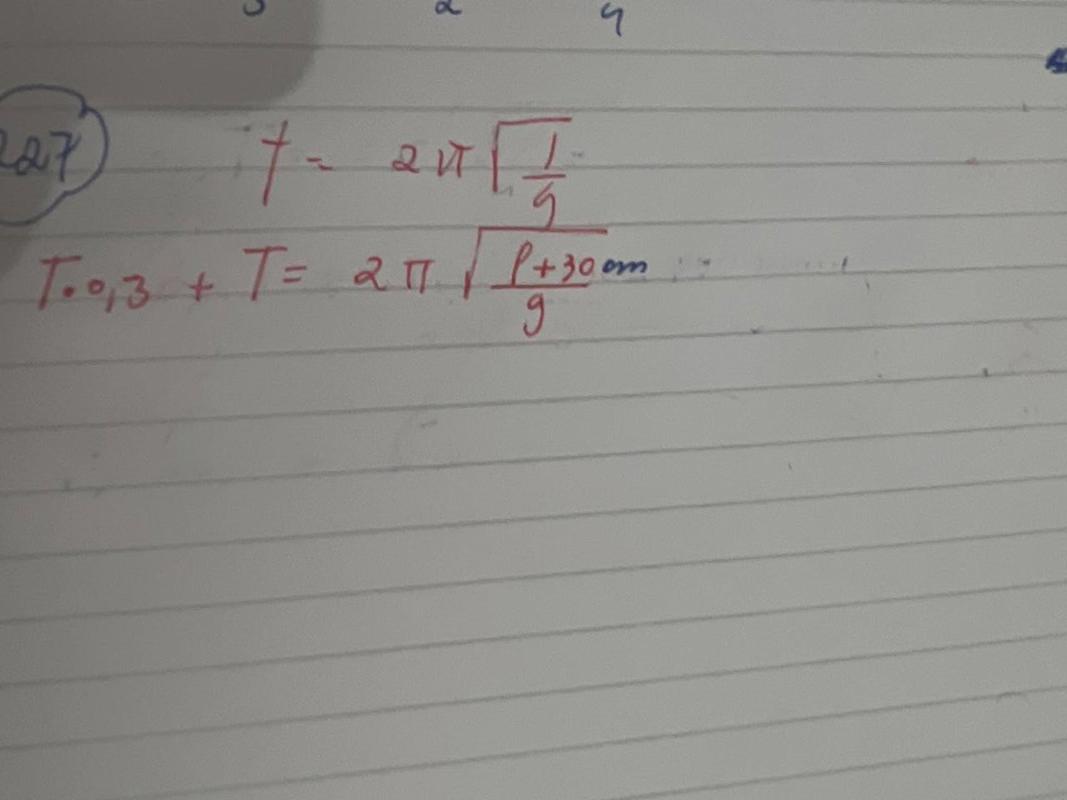 3 2 4
227 T = 2π√(l/g)
T·0,3 + T = 2π√((l+30cm)/g)